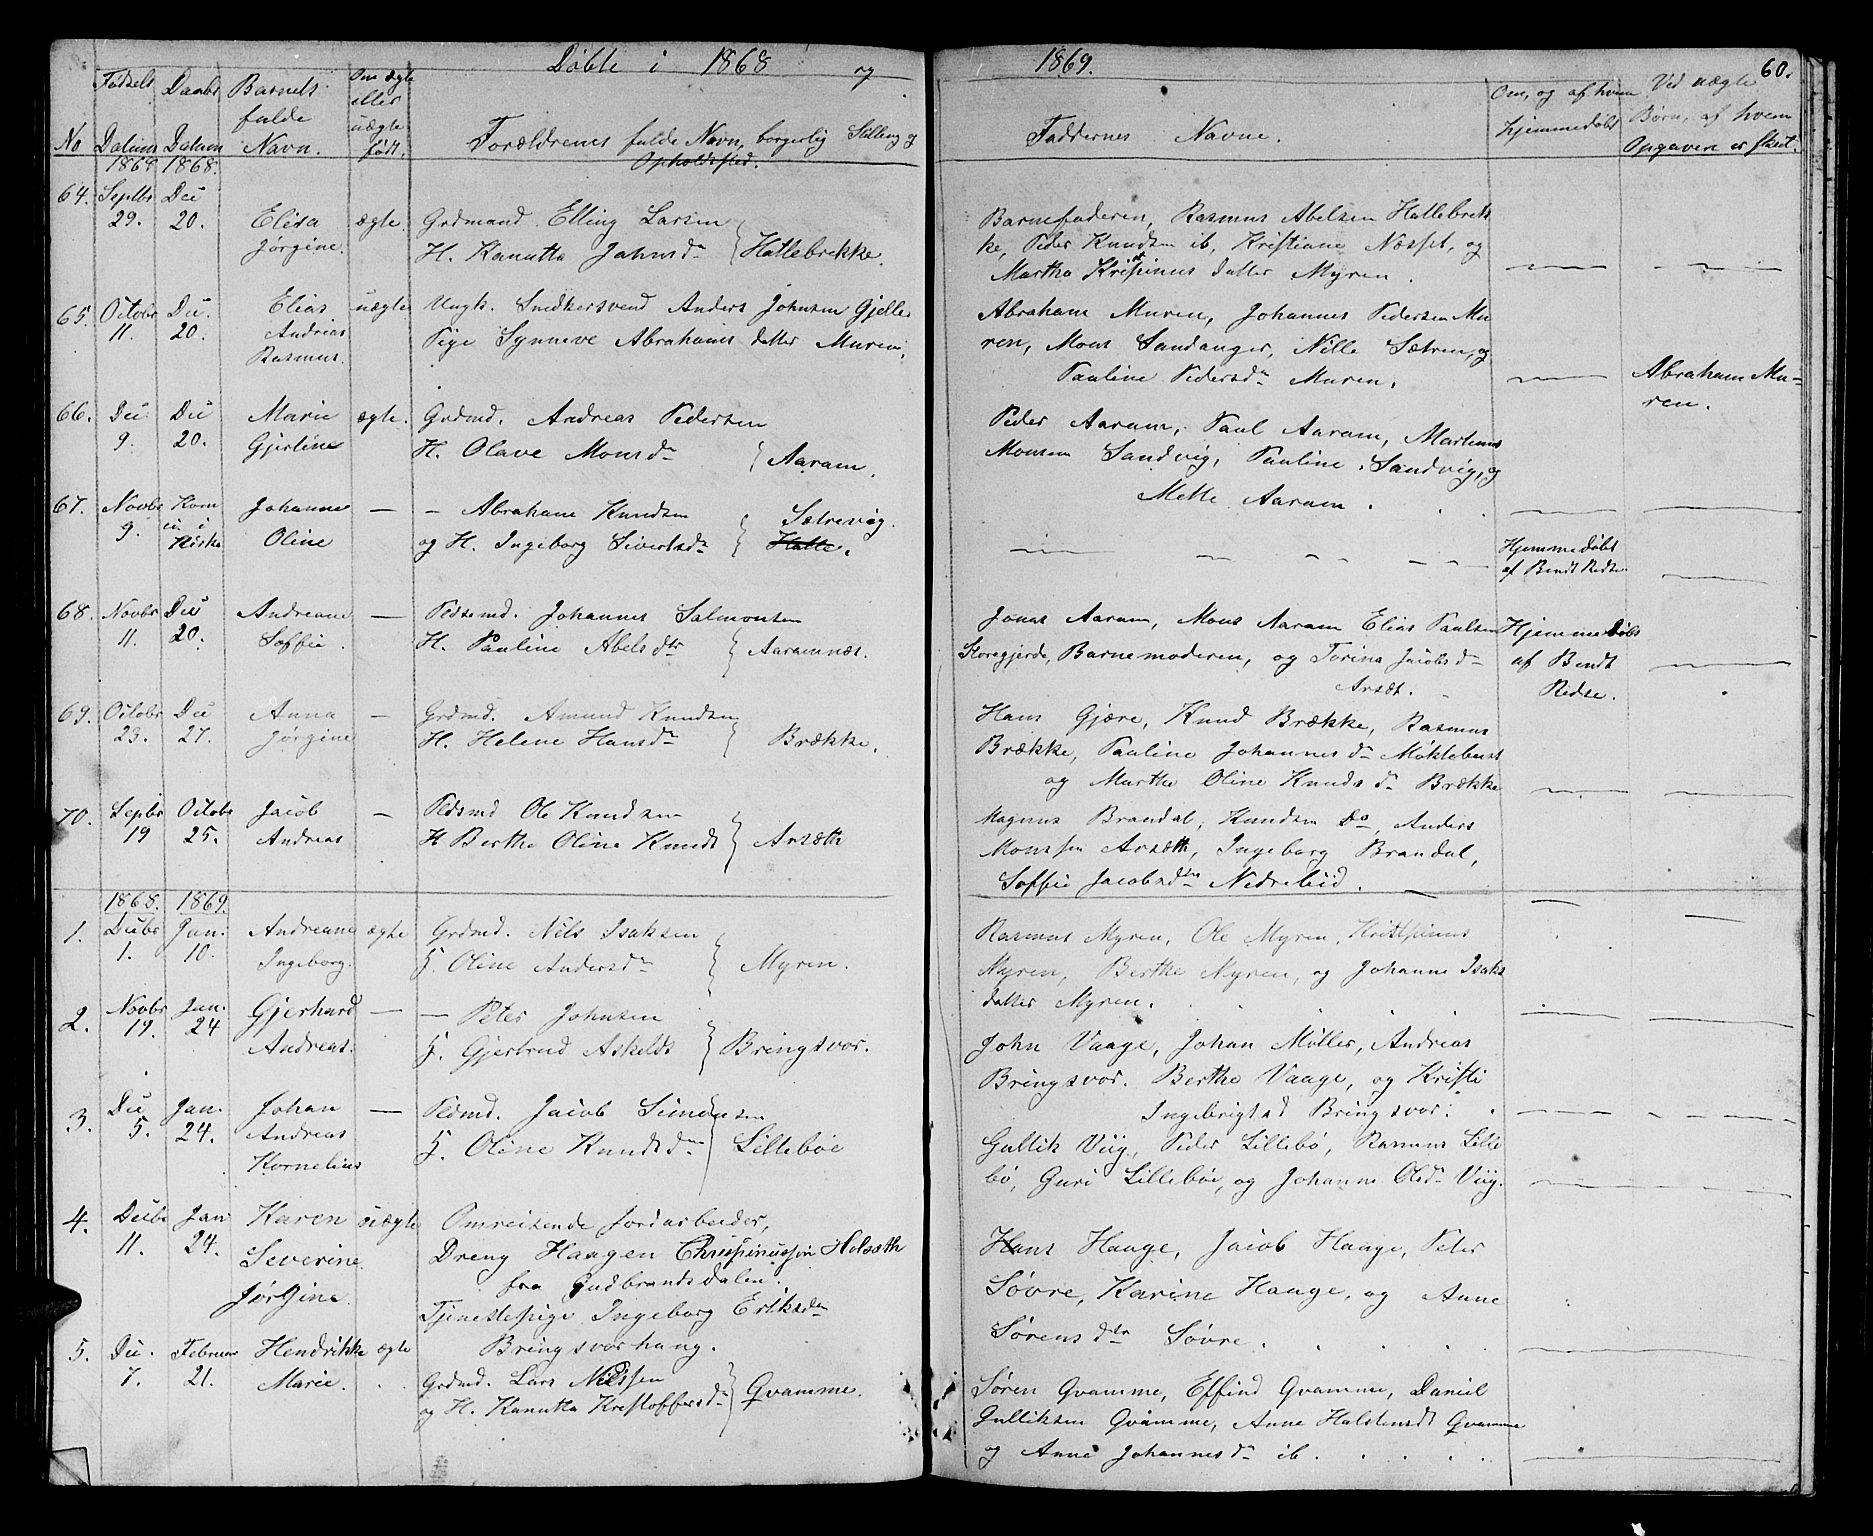 Døbte i 1868 og 1869. 60.
No
Fødsels Datum 1868
Daabs Datum 1868.
Barnets fulde Navn.
Om ægte eller uægte født.
Forældrenes fulde Navn, borgerlig Stilling og Opholdssted.
Faddernes Navne.
Om, og af hvem hjemmedøbt
Ved uægte Børn, af hvem Opgaven er skeet.
64. Septbr 29. Dec 20. Elisa Jørgine. ægte.
Grdmand Elling Larsen
H. Kanutta Jahnsdr } Hatlebrekke.
Barnefaderen, Rasmus Abelsen Hatlebrek
ke, Peder Knudsen ib, Kristiane Nosset, og
Martha Krispinus datter Myren.
65. Octobr 11. Dec. 20. Elias Andreas Rasmus. uægte
Ungk. Snedkersvend Anders Johnsen Gjelle
Pige Synneve Abrahams datter Muren.
Abraham Muren, Johannes Pedersen Mu
ren, Mons Sandanger, Nille Sætren, og
Pauline Pedersdr Muren.
Abraham Mu-
ren.
66. Dec. 9. Dec 20. Marie Gjertine ægte.
Grdmd. Andreas Pedersen
H. Olave Monsdr } Aaram.
Peder Aaram, Paul Aaram, Martinus
Monsen Sandvig, Pauline Sandvig, og
Mette Aaram.
67. Novbr 9. Kom in i Kirke Johanne Oline —
— Abraham Knudsen
og H. Ingeborg Sivertsdr } Sætrevig. Hatle.
Hjemmedøbt
af Bendt Redse.
68. Novbr 11. Dec 20. Andreane Soffie. —
Pldsemd. Johannes Salmonsen
H. Pauline Abelsdtr } Aaramnæs.
Jonas Aaram, Mons Aaram Elias Paulsen
Storegjerde, Barnemoderen, og Torina Jacobsdr
Arsæt.
Hjemmedøbt
af Bendt
Redse.
69. Octobr 23. Dec 27. Anna Jørgine —
Grdmd. Amund Knudsen
H. Helene Hansdr } Brække.
Hans Gjære, Knud Brække, Rasmus
Brække, Pauline Johannesdr Møklebust
og Marthe Oline Knudsdr Brække
70. Sepbr 19 Octobr 25. Jacob Andreas —
Pldsmd Ole Knudsen
H Berthe Oline Knudt } Arsæth
Magnus Brandal, Knudsen Do, Anders
Monssen Arsæth, Ingeborg Brandal,
Soffie Jacobsdtr Nedrelid.
1868. 1869.
1. Decbr 1. Jan. 10. Andreane Ingeborg. ægte
Grdmd. Nils Isaksen
H. Oline Andersdr } Myren.
Rasmus Myren, Ole Myren, Kristpinus
Myren, Berthe Myren, og Johanne Isaks
datter Myren.
2. Novbr 19. Jan. 24 Gjerhard Andreas. —
— Peter Johnsen
H. Gjertrud Askelds } Bringsvor.
John Vaage, Johan Møller, Andreas
Bringsvor. Berthe Vaage, og Kristi
Ingebrigtsd Bringsvor.
3. Dec 5. Jan. 24. Johan Andreas Kornelius —
Pldmd. Jacob Simonsen
H. Oline Knudsdr } Lillebøe
Gullik Viig, Peder Lillebø, Rasmus Lille
bø, Guri Lillebøe, og Johanne Olsd Viig.
4. Decbr 11. Jan 24. Karen Severine Jørgine. uægte
Omreisende Jordarbeider,
Dreng Haagen Chrispinussøn Holsæth
fra Gudbrandsdalen.
Tjenestepige Ingeborg Eriksdr
Bringsvorhaug.
Hans Haage, Jacob Haage, Peter
Søvre, Karine Haage, og Anne
Sørensdtr Søvre.
5. Dec. 7. Februar 21. Hendrikke Marie. ægte
Grdmd. Lars Nilssen
og H. Kanutta Kristoffersdr } Qvamme.
Søren Qvamme, Effind Qvamme, Daniel
Gulliksen Qvamme, Anne Halstensdt Qvamme
og Anne Johannesdr ib.